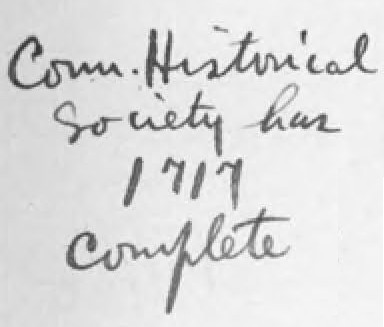 Conn. Historical
Society has
1717
complete